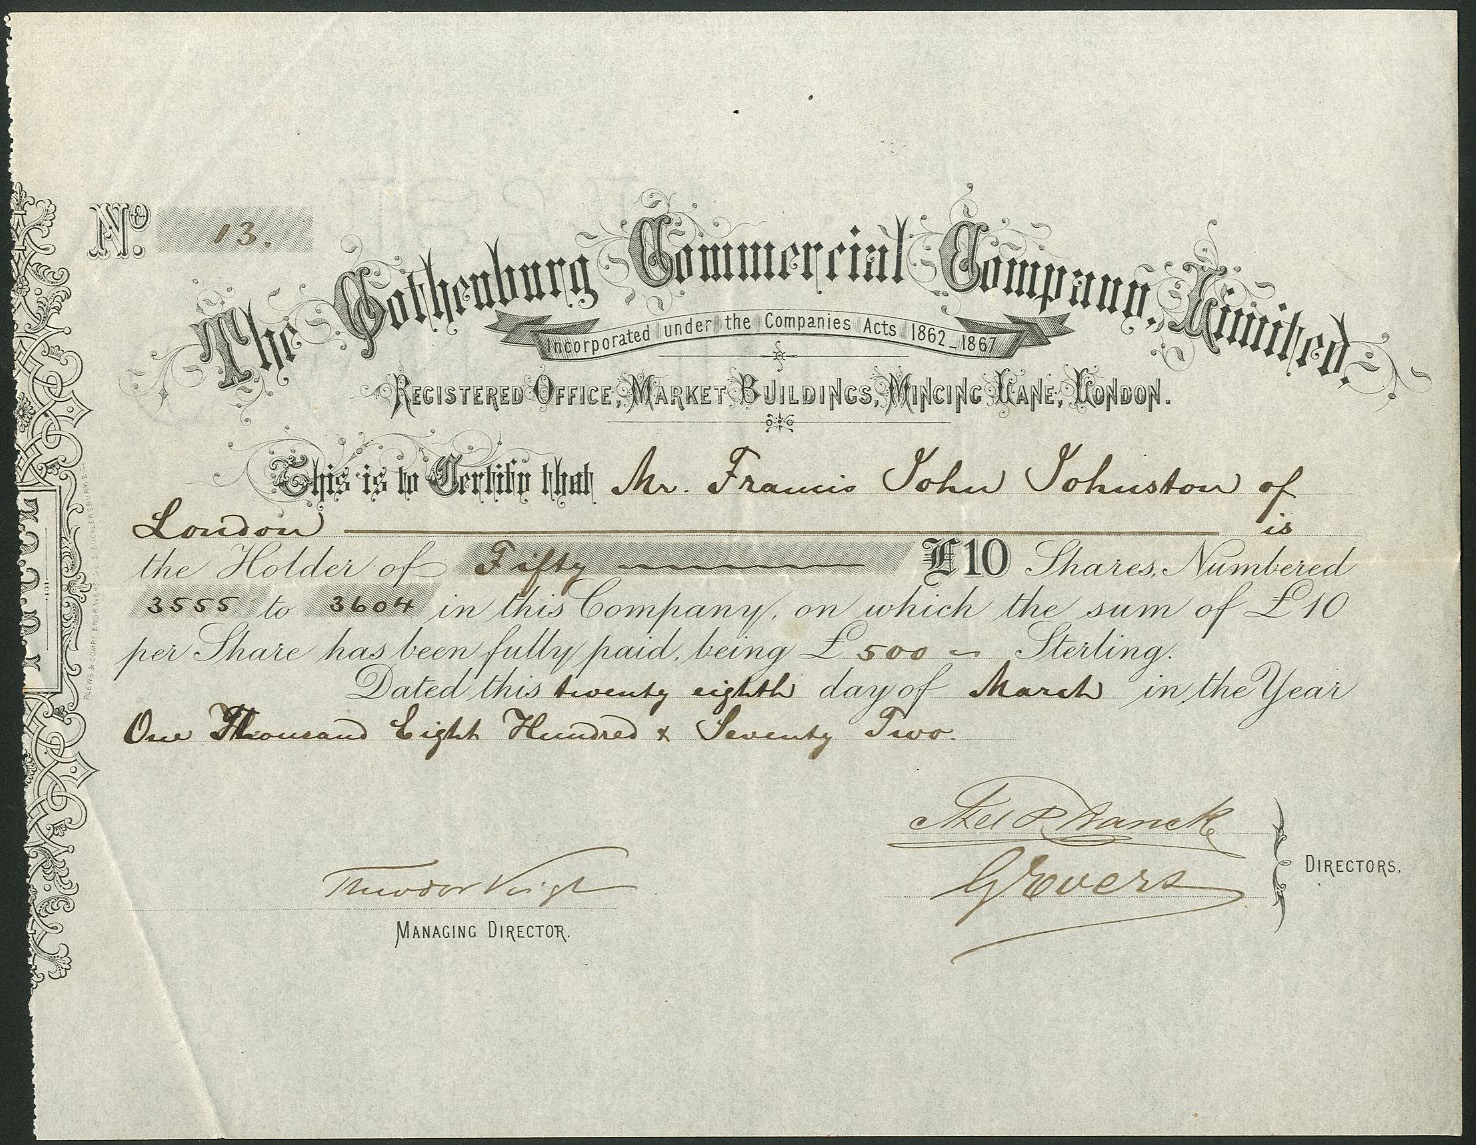 No. 13.
The Gothenburg Commercial Company, Limited.
Incorporated under the Companies Acts 1862_1867
REGISTERED OFFICE, MARKET BUILDINGS, MINCING LANE, LONDON.
This is to Certify that Mr. Francis John Johnston of
London is
the Holder of Fifty £10 Shares, Numbered
3555 to 3604 in this Company, on which the sum of £10
per Share has been fully paid, being £500 Sterling.
Dated this twenty eighth day of March in the Year
One Thousand Eight Hundred & Seventy Two.
Theodor
G Evers
DIRECTORS.
MANAGING DIRECTOR.